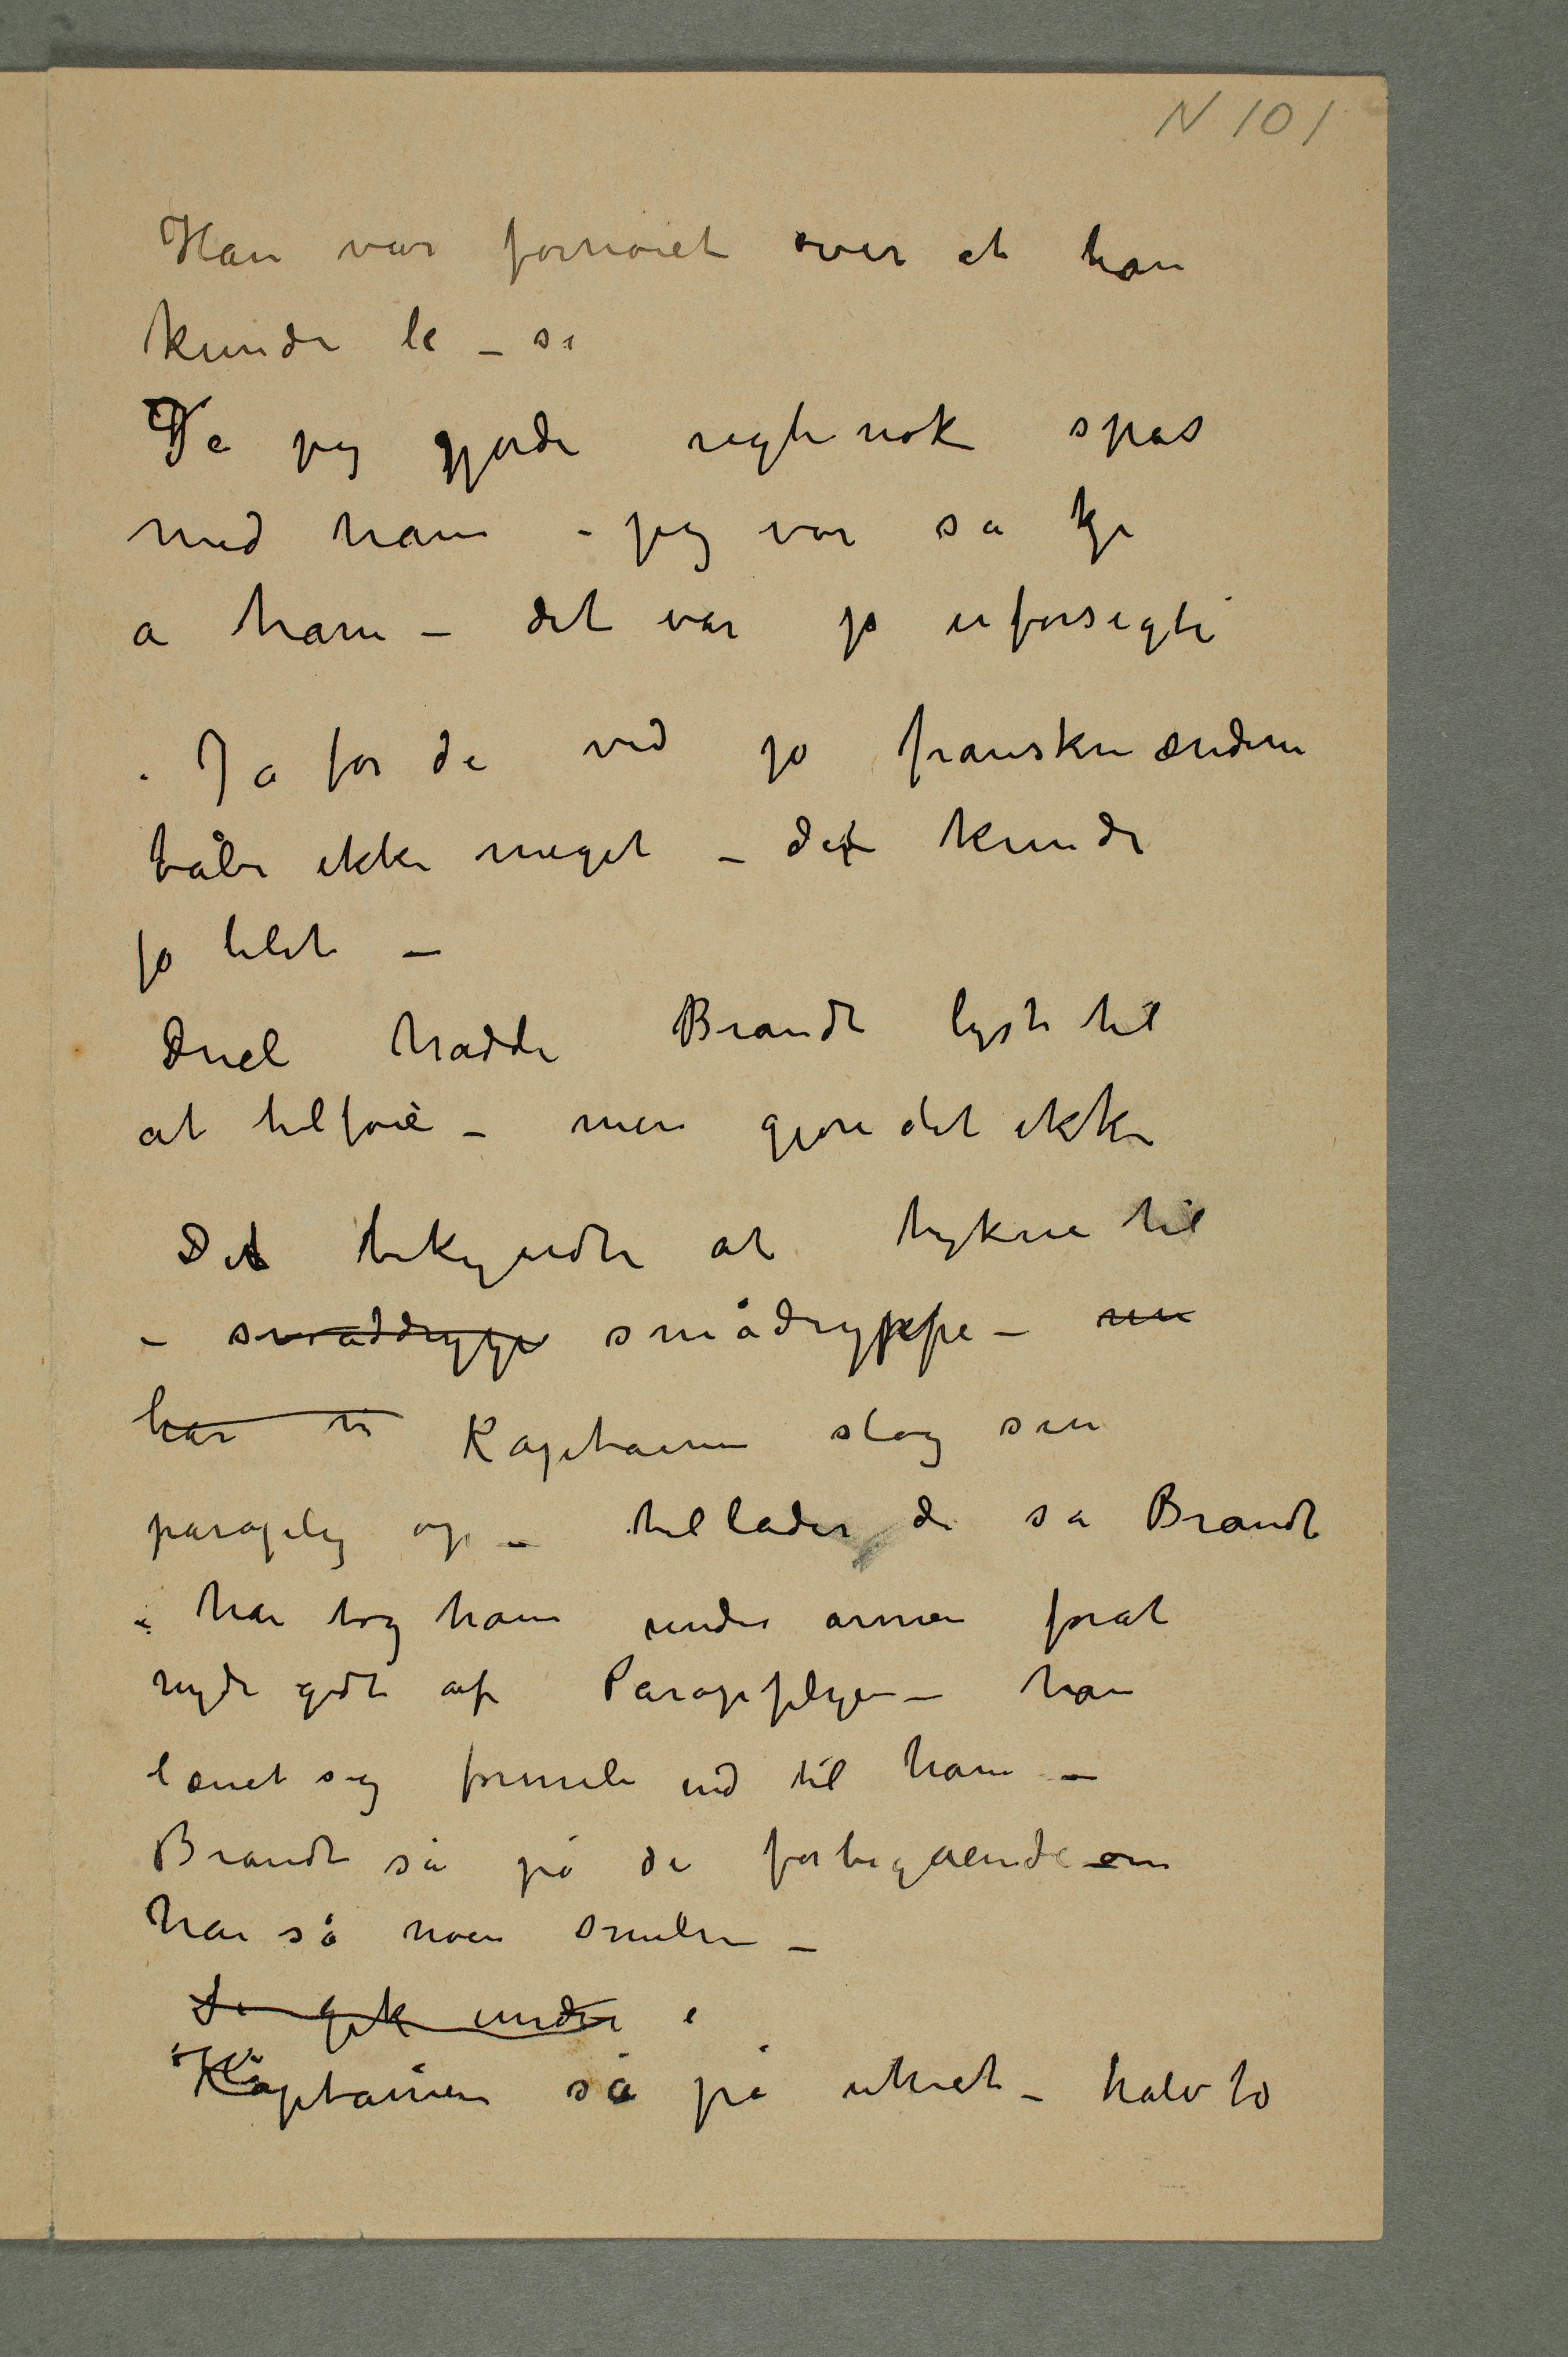 N 101
Han var fornøiet over at han
kunde le – se
Ja jeg gjorde regtinok spas
med ham – jeg var sa kje
a ham – det var jo uforsigti
– Ja for de ved jo franskmændene
tåler ikke meget – det kunde
jo blit –
Duel hadde Brandt lyst til
at tilføie – men gjore det ikke
Det bekyndte at tykne til
– smaddryppe smådryppe – nu
har vi Kapitainen slog sin
paraply op – tillader de sa Brandt
– han tog ham under armen forat
nyde godt af Parapplyen – han
lænet sig formeli ind til ham –
Brandt så på de forbigåendeom
han så noen smilen –
De gik under i
Kaptainen så på uhret – halv to